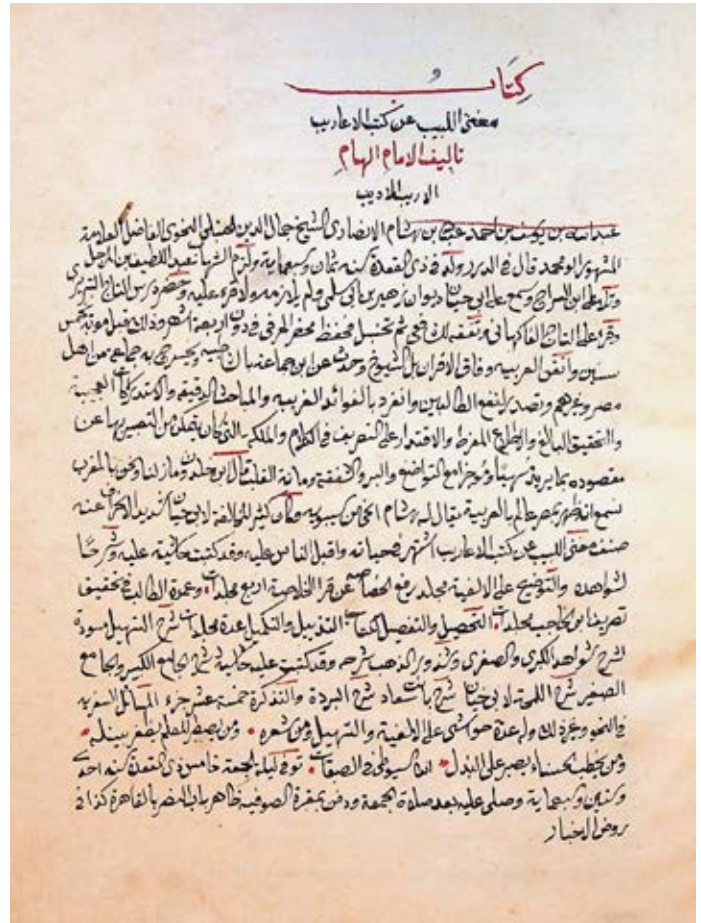 كتاب
مغنى اللبيب عن كتب الاعاريب
تاليف الامام الهمام
الاريب الاديب
عبد الله بن يوسف بن احمد بن هشام الانصارى الشيخ جمال الدين الحنبلى النحوى الفاضل العلامة
المشهور ابو محمد قال فى الدرر ولد فى ذى القعدة سنة ثمان وسبعماية ولزم الشهاب عبد اللطيف بن المرحل
وتلا على ابن السراج وسمع على ابى حيان ديوان زهير بن ابى سلمى ولم يلازمه ولا قرء عليه وحضر درس التاج التبريزى
وقرا على التاج الفاكهانى وتفقه للشافعى ثم تحنبل فحفظ مختصر الخرقى فى دون اربعة اشهر وذلك قبل موته بخمس
سنين واتقن العربيه وفاق الاقران بل الشيوخ وحدث عن ابن جماعة بالشاطبيه وتخرج به جماعه من اهل
مصر وغيرهم وتصدر لنفع الطالبين وانفرد بالفوائد الغريبه والمباحث الدقيقه والاستدراكات العجيبة
والتحقيق البالغ والاطلاع المفرط والاقتدار على التصرف فى الكلام والملكه التى كان يتمكن من التعبير بها عن
مقصوده بما يريد مسهبا وموجزا مع التواضع والبر والشفقة ورقة القلب قال ابن خلدون ما زلنا ونحن بالمغرب
نسمع انه ظهر بمصر عالم بالعربية يقال له ابن هشام انحى من سيبويه وكان كثير المخالفة لابى حيان شديد الانحراف عنه
صنف مغنى اللبيب عن كتب الاعاريب اشتهر فى حياته واقبل الناس عليه وقد كتبت حاشية عليه وشرحا
لشواهده والتوضيح على الالفية مجلد رفع الخصاصه عن قرا الخلاصة اربع مجلدات وعمدة الطالب فى تحقيق
تصريف ابن الحاجب مجلدات التحصيل والتفصيل لكتاب التذييل والتكميل عدة مجلدات شرح التسهيل مسودة
شرح شواهد الكبرى والصغرى وشذور الذهب شرحه وقد كتبت عليه حاشية شرح الجامع الكبير والجامع
الصغير شرح اللمحة لابى حيان شرح بانت سعاد شرح البردة والتذكرة خمسة عشر جزء المسائل السفريه
فى النحو وغير ذلك وله عدة حواشى على الالفية والتسهيل ومن شعره ومن يصطبر للعلم يظفر بنيله
ومن يخطب الحسناء يصبر على البذل السيوطى فى الطبقات توفى ليلة الجمعة خامس ذى القعدة سنة احدى
وستين وسبعماية وصلى عليه بعد صلاة الجمعة ودفن بمقبرة الصوفيه ظاهر باب النصر بالقاهرة كذا فى
روض الاخبار